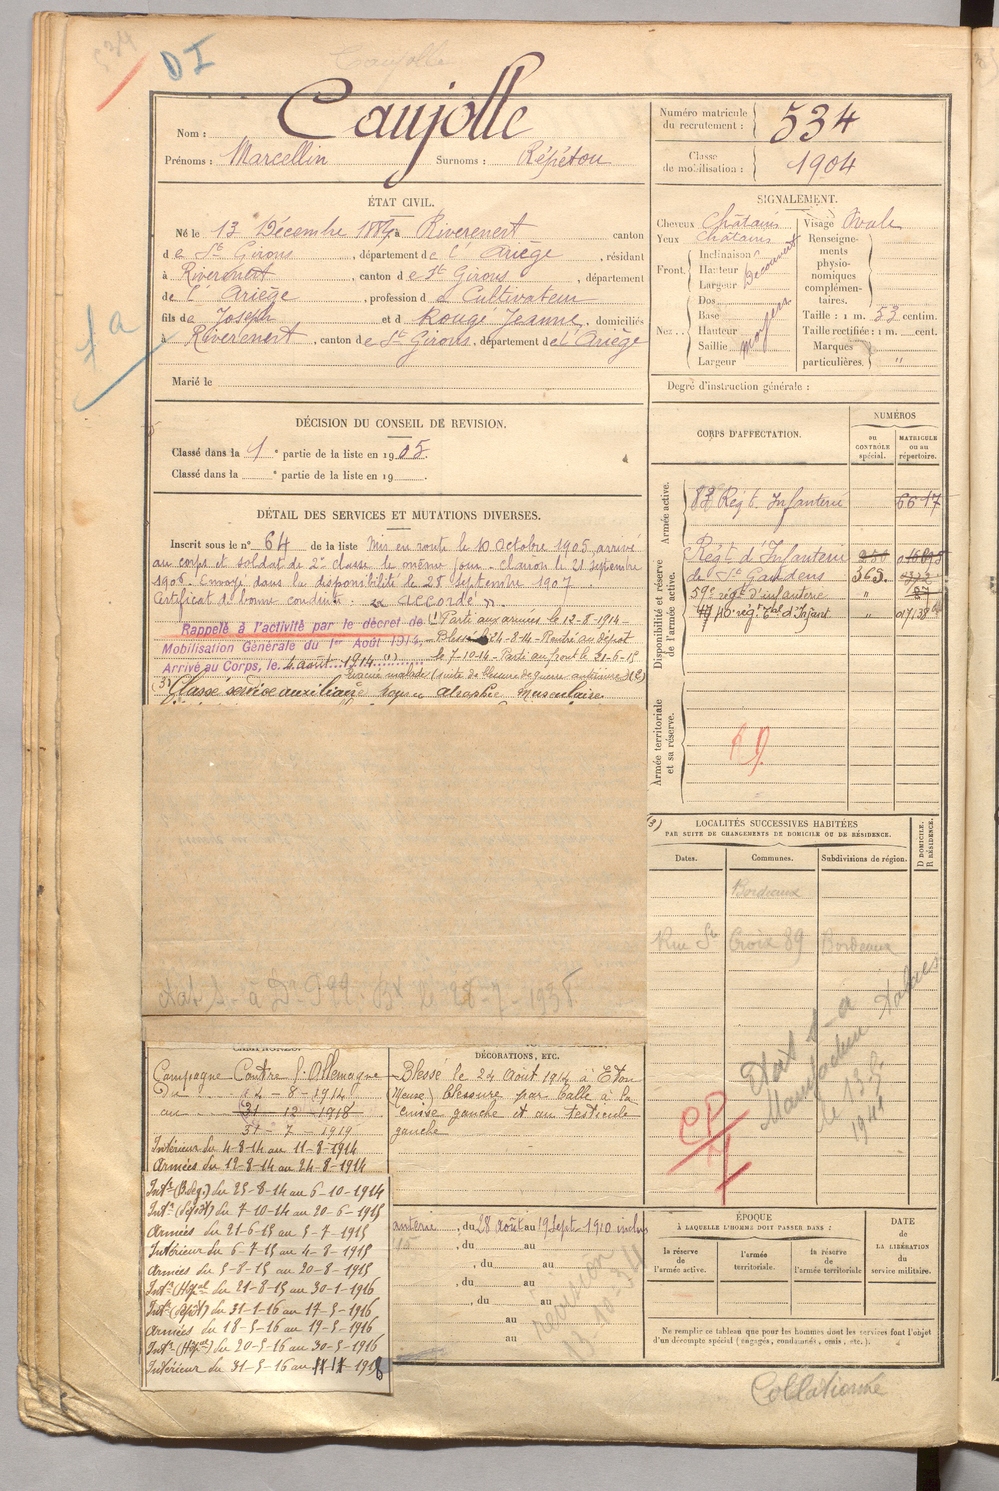 534
DI
Caujolle
Nom : Caujolle
Prénoms : Marcellin Surnoms : Répétou
Numéro matricule du recrutement : 534
Classe de mobilisation : 1904
ÉTAT CIVIL.
Né le 13 Décembre 1884, à Riverenert canton
de St Girons, département de l'Ariège, résidant
à Riverenert, canton de St Girons, département
de l'Ariège, profession d Cultivateur
fils de Joseph et d Rougé Jeanne, domiciliés
à Riverenert, canton de St Girons, département de l'Ariège
Marié le
SIGNALEMENT.
Cheveux Châtains
Yeux châtains
Front. Inclinaison Hauteur Largeur Découvert
Nez. Dos Base Hauteur Saillie Largeur moyens
Visage Ovale
Renseignements physionomiques complémentaires.
Taille : 1 m. 53 centim.
Taille rectifiée : 1 m. cent.
Marques particulières. "
Degré d'instruction générale :
DÉCISION DU CONSEIL DE REVISION.
Classé dans la 1e partie de la liste en 1905.
Classé dans la e partie de la liste en 19
DÉTAIL DES SERVICES ET MUTATIONS DIVERSES.
Inscrit sous le n° 64 de la liste Mis en route le 10 Octobre 1905, arrivé
au corps et soldat de 2e classe le même jour. Clairon le 21 septembre
1906. Envoyé dans la disponibilité le 28 septembre 1907.
Certificat de bonne conduite « accordé ».
Rappelé à l'activité par le décret de Mobilisation Générale du 1er Août 1914.
Arrivé au Corps, le 4 août 1914
Parti aux armées le 12-8-1914
Blessé 24-8-14 - Rentré au Dépôt
le 7-10-14 - Parti au front le 21-6-15
Evacué malade (suite de blessure de guerre antérieure)
(3) Classé service auxiliaire atrophie musculaire
CORPS D'AFFECTATION.
NUMÉROS
au CONTRÔLE spécial.
MATRICULE ou au répertoire.
Armée active.
83 Régt Infanterie 6617
Disponibilité et réserve de l'armée active.
Régt d'Infanterie
de St Gaudens 363.
59e régt d'infanterie "
Armée territoriale et sa réserve.
LOCALITÉS SUCCESSIVES HABITÉES
PAR SUITE DE CHANGEMENTS DE DOMICILE OU DE RÉSIDENCE.
Dates. Communes. Subdivisions de région. D DOMICILE. R RÉSIDENCE.
Bordeaux
Rue Ste Croix 89 Bordeaux
le 28-7-1938
Manufacture Tabacs
1941
DÉCORATIONS, ETC.
Campagne Contre l'Allemagne
Du 4-8-1914
au 31-12-1918
31-7-1919
Intérieur du 4-8-14 au 11-8-1914
Armées du 12-8-14 au 24-8-1914
Intr (B. de g.) du 25-8-14 au 6-10-1914
Intr (Dépôt) du 7-10-14 au 20-6-1915
Armées du 21-6-15 au 5-7-1915
Intérieur du 6-7-15 au 4-8-1915
Armées du 5-8-15 au 20-8-1915
Intr (Hôpal) du 21-8-15 au 30-1-1916
Intr (Dépôt) du 31-1-16 au 17-5-1916
Armées du 18-5-16 au 19-5-1916
Intr (Hôpal) du 20-5-16 au 30-5-1916
Intérieur du 31-5-16 au
Blessé le 24 août 1914 à Eton
(Meuse) blessure par balle à la
cuisse gauche et au testicule
gauche
anterie, du 28 Août au 19 Sept. 1910 inclus
, du au
, du au
, du au
, du au
au
au
révision
ÉPOQUE
À LAQUELLE L'HOMME DOIT PASSER DANS :
la réserve de l'armée active.
l'armée territoriale.
la réserve de l'armée territoriale
DATE DE LA LIBÉRATION du service militaire.
Ne remplir ce tableau que pour les hommes dont les services font l'objet
d'un décompte spécial (engagés, condamnés, omis, etc.).
Collationné